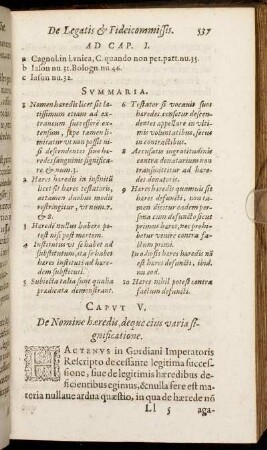 De Legatis & Fideicommissis. 537
AD CAP. I.
a Cagnol. in l. vnica, C. quando non pet. patt. nu. 35.
b Iason nu. 31. Bologn. nu. 46.
c Iason nu. 32.
SVMMARIA.
1 Nomen hæredis licet sit la-
tissimum etiam ad ex-
traneum successorē ex-
tensum, sæpe tamen li-
mitatur vt non possit
nisi descendentes suos hæ
redes sanguinis significa-
re & num. 3.
2 Hares haredis in infiniti
licet sit hares testatoris,
actamen duobus modis
restringitur, vt num. 7.
& 8.
3 Haredi nullus habere po-
test nisi post mortem.
4 Institutus vt se habet ad
substitutum, ita se habet
hares instituti ad haredem
substituti.
5 Subiecta talia sunt qualia
prædicata demonstrant.
6 Testator si vocauit suos
haredes, censetur descen-
dentes appellare ex vlti-
mis voluntatibus, secus
in contractibus.
8 Accusatio ingratitudinis
contra donatarium non
transmittitur ad hare-
des donatoris.
9 Hares haredis quamuis sit
hares defuncti, non ta-
men dicitur eadem per-
sona cum defuncto sicut
primus hares, nec prohi-
betur venire contra fa-
ctum primi.
Iura dosis hares haredis nō
est hares defuncti, ibid.
nu. 10.
10 Hares nihil potest contra
factum defuncti.
CAPVT V.
De Nomine hæredis, deque eius varia si-
gnificatione.
HACTENVS in Gordiani Imperatoris
Rescripto decessante legitima succes-
sione, siue de legitimis hæredibus de-
ficientibus egimus, & nulla fere est ma-
teria nullaue ardua quæstio, in qua de hærede nō
Ll 5 aga-